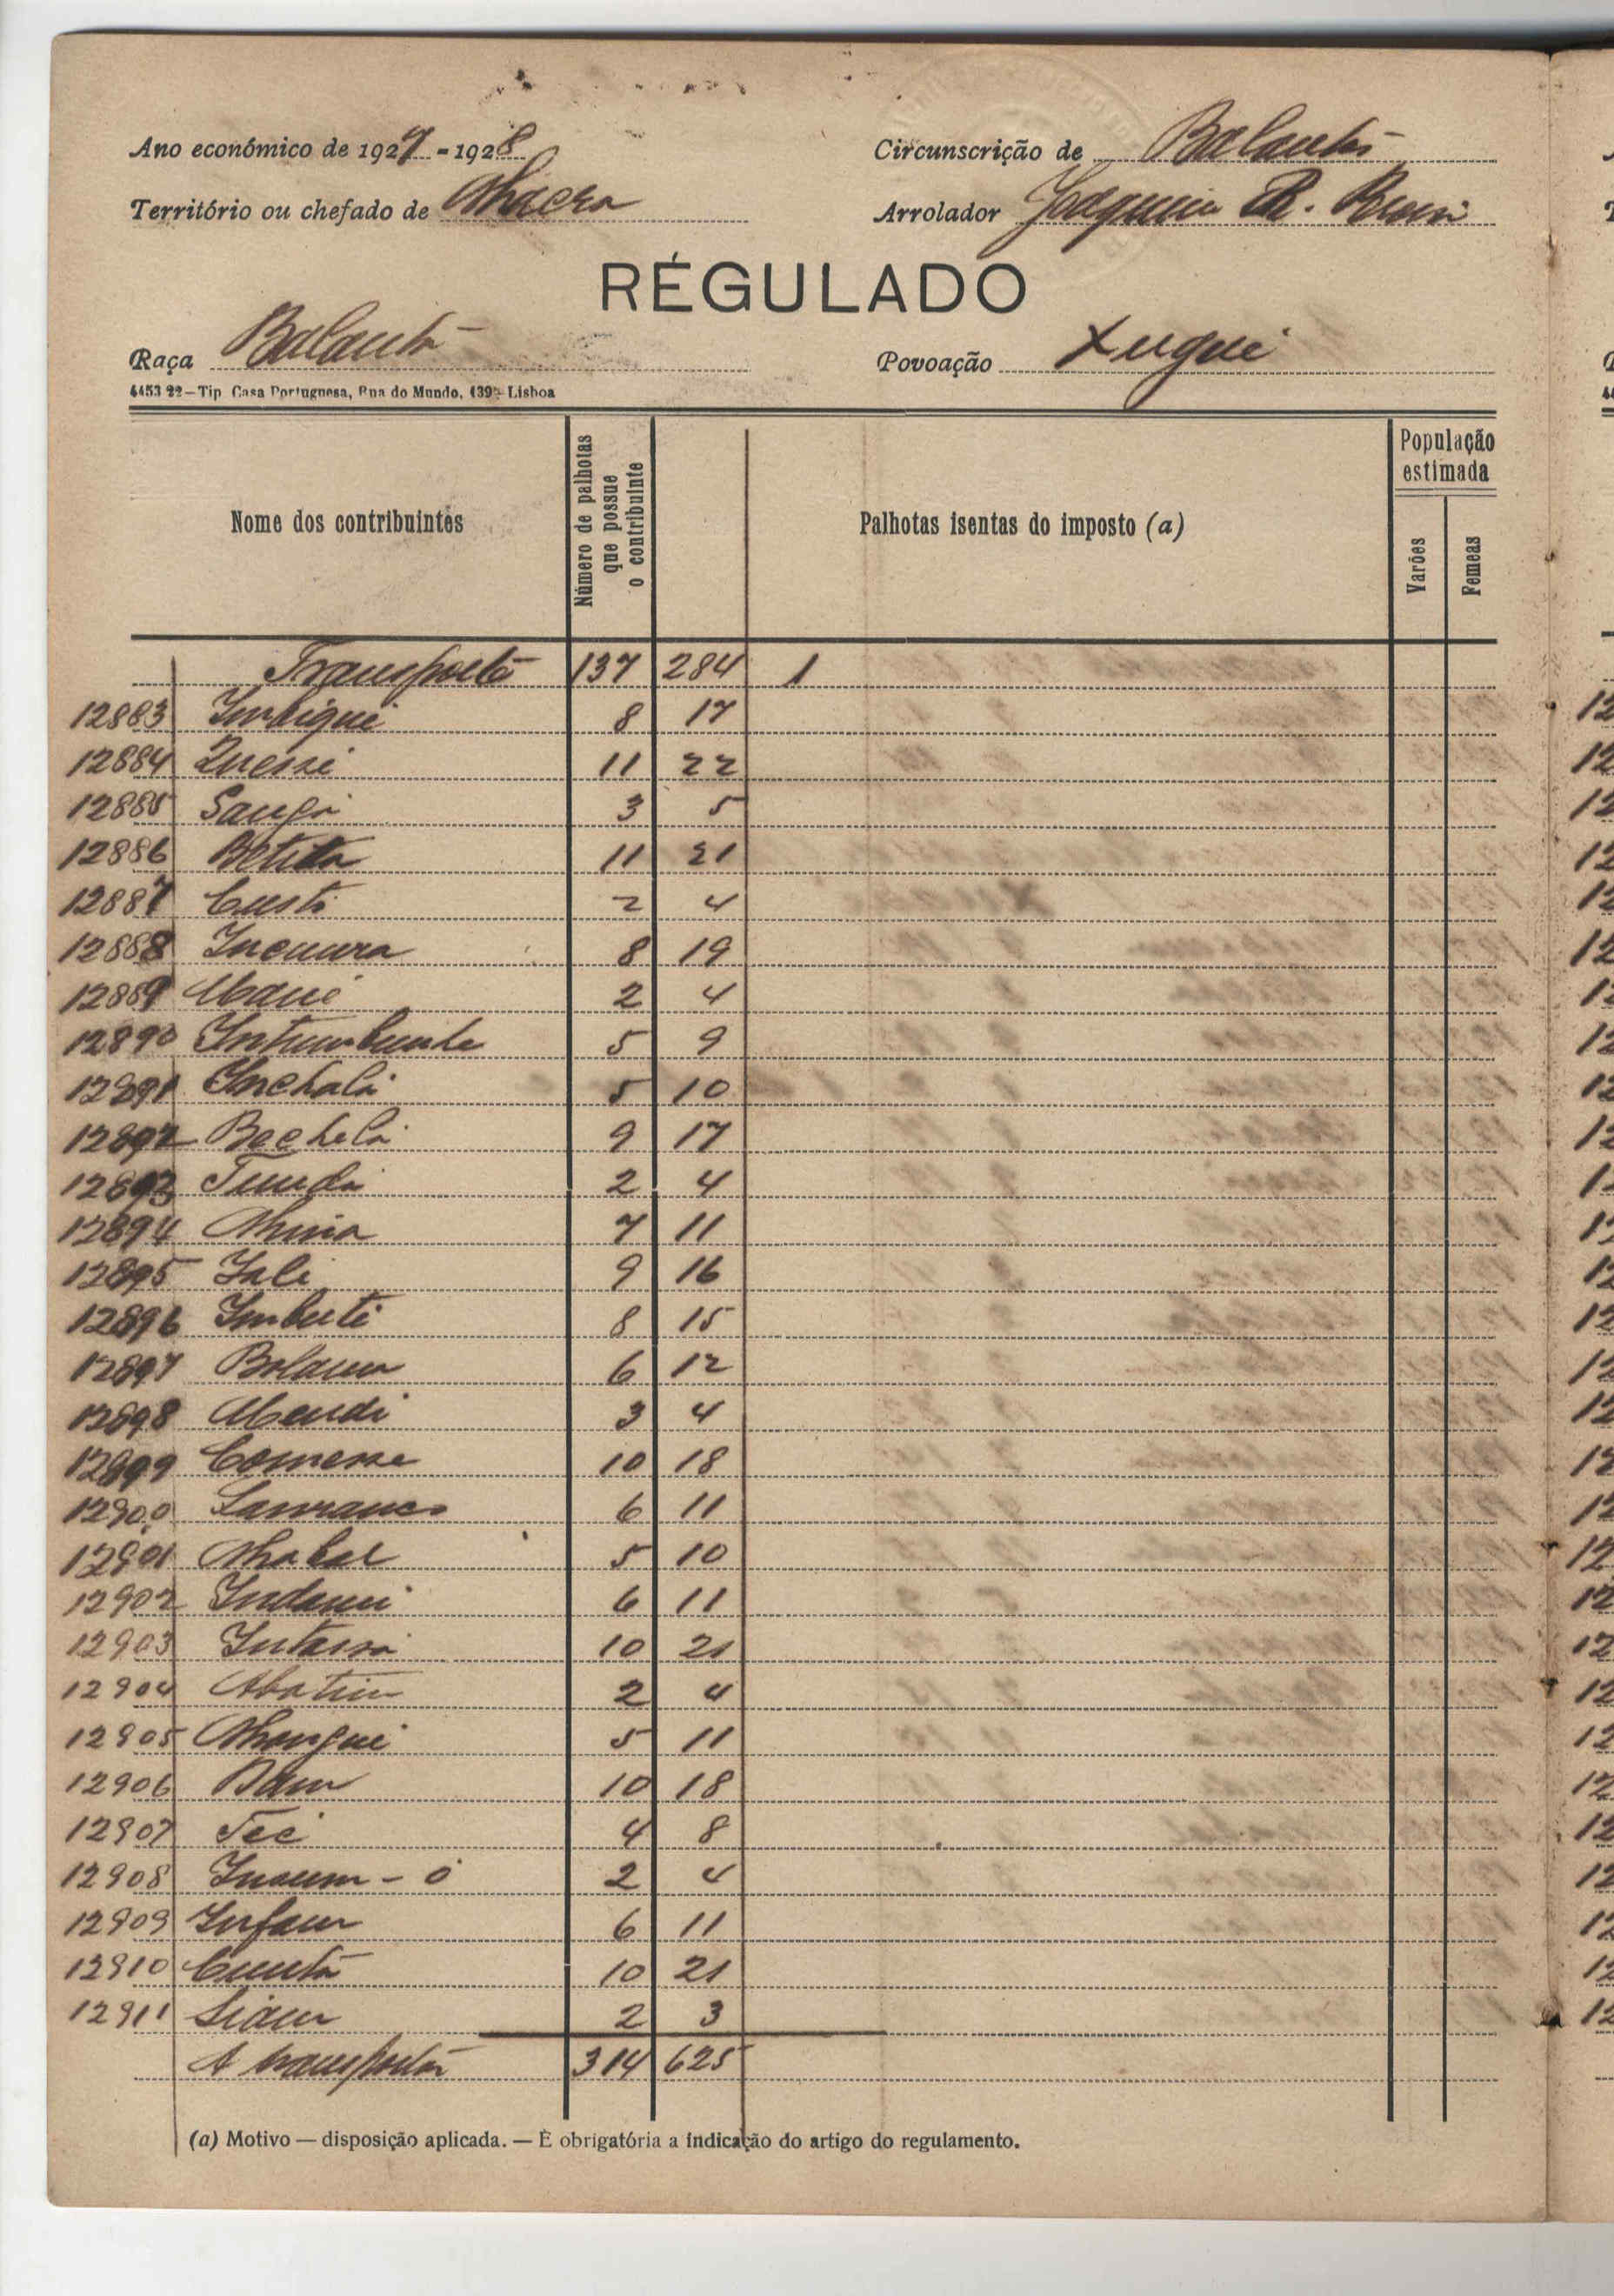 Ano económico de 1927 - 1928
Circunscrição de Balantas
Território ou chefado de Nhacra
Arrolador Joaquim R.
RÉGULADO
Raça Balanta
Povoação Xugue
4453 22—Tip. Casa Portuguesa, Rua do Mundo, 139 - Lisboa
Nome dos contribuintes
Número de palhotas que possue o contribuinte
Palhotas isentas do imposto (a)
População estimada
Varões
Femeas
Transporte 137 284 1
12883 Imbigué 8 17
12884 Quessé 11 22
12885 Sanfá 3 5
12886 Betita 11 21
12887 Custi 2 4
12888 Incuura 8 19
12889 Mané 2 4
12890 Intumbunhe 5 9
12891 Inchalá 5 10
12892 Bechelá 9 17
12893 Tunda 2 4
12894 Nhina 7 11
12895 Iali 9 16
12896 Imbuté 8 15
12897 Bolaum 6 12
12898 Mendi 3 4
12899 Comesse 10 18
12900 6 11
12901 Nhabal 5 10
12902 Indami 6 11
12903 Intassá 10 21
12904 Abatim 2 4
12905 Nhangué 5 11
12906 Dam 10 18
12907 Téé 4 8
12908 - ó 2 4
12909 Infaur 6 11
12910 Cuntá 10 21
12911 Siaur 2 3
A transportar 314 625
(a) Motivo — disposição aplicada. — É obrigatória a indicação do artigo do regulamento.